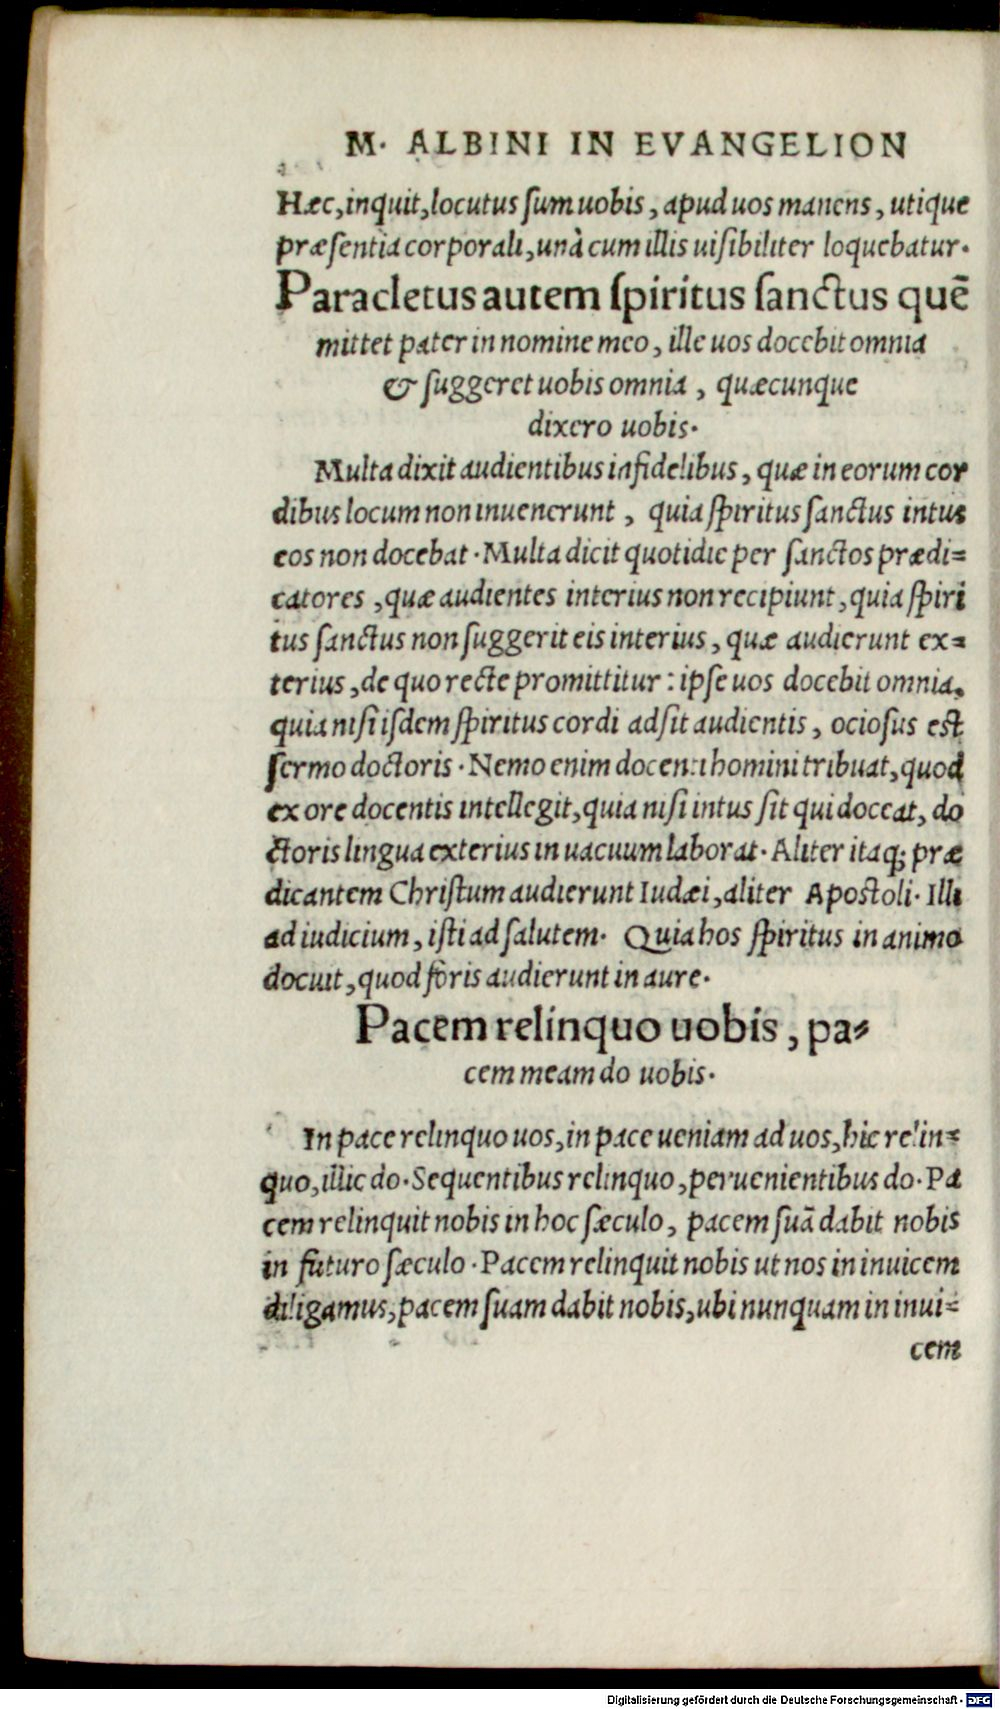 M. ALBINI IN EVANGELION
Hæc, inquit, locutus sum uobis, apud uos manens, utique
præsentia corporali, unà cum illis uisibiliter loquebatur.
Paracletus autem spiritus sanctus quē
mittet pater in nomine meo, ille uos docebit omnia
& suggeret uobis omnia, quæcunque
dixero uobis.
Multa dixit audientibus infidelibus, quæ in eorum cor
dibus locum non inuenerunt, quia spiritus sanctus intus
eos non docebat. Multa dicit quotidie per sanctos prædi=
catores, quæ audientes interius non recipiunt, quia spiri
tus sanctus non suggerit eis interius, quæ audierunt ex=
terius, de quo recte promittitur: ipse uos docebit omnia.
quia nisi isdem spiritus cordi adsit audientis, ociosus est
sermo doctoris. Nemo enim docenti homini tribuat, quod
ex ore docentis intellegit, quia nisi intus sit qui doceat, do
ctoris lingua exterius in uacuum laborat. Aliter itaq; præ
dicantem Christum audierunt Iudæi, aliter Apostoli. Illi
ad iudicium, isti ad salutem. Quia hos spiritus in animo
docuit, quod foris audierunt in aure.
Pacem relinquo uobis, pa=
cem meam do uobis.
In pace relinquo uos, in pace ueniam ad uos, hic relin=
quo, illic do. Sequentibus relinquo, peruenientibus do. Pa
cem relinquit nobis in hoc sæculo, pacem suā dabit nobis
in futuro sæculo. Pacem relinquit nobis ut nos in inuicem
diligamus, pacem suam dabit nobis, ubi nunquam in inui=
cem
Digitalisierung gefördert durch die Deutsche Forschungsgemeinschaft - DFG